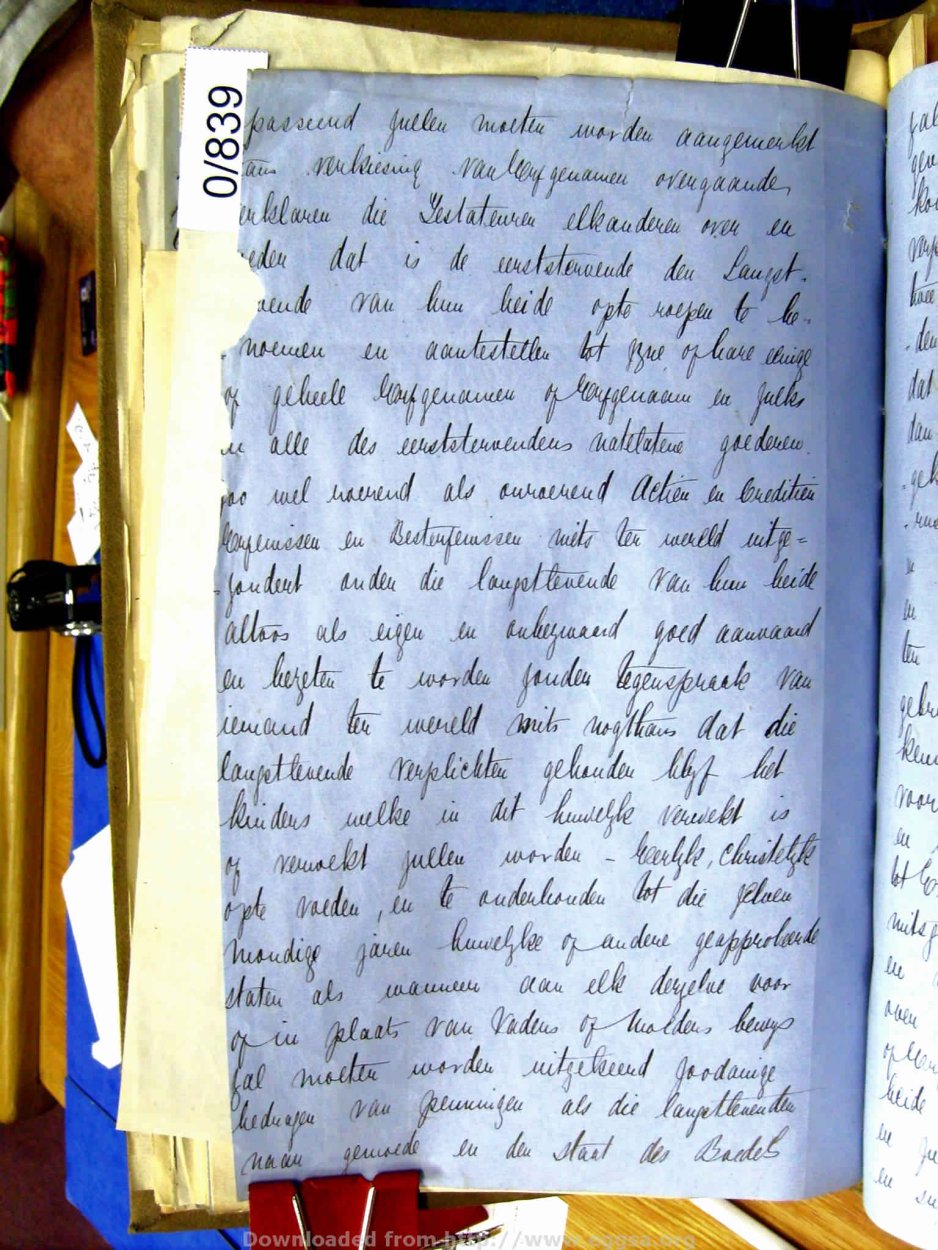 0/839
passeend zullen moeten worden aangemerkt
verkiesing van Erfgenamen overgaande,
verklaren die Testateuren elkanderen over en
dat is de eerststervende den Langst-
vende van hun beide opte roepen te be-
noemen en aantestellen tot zyne of hare eenige
of geheele Erfgenamen of Erfgenaam en zulks
in alle des eerststervendens natelatene goederen
zoo wel roerend als onroerend Actien en Creditien
Erfenissen en Besterfenissen niets ter wereld uitge=
zondert onder die langstlevende van hun beide
altoos als eigen en onbezwaard goed aanvaard
en bezeten te worden zonder tegenspraak van
iemand ter wereld mits nogthans dat die
langstlevende verplichten gehouden blyf het
kinders welke in dit huwelyk verwekt is
of verwekt zullen worden - Eerlyk, Christelyk
opte voeden, en te onderhouden tot die zelven
mondige jaren huwelyke of andere geapprobeerde
staten als wanneer aan elk derzelve voor
of in plaats van Vaders of Moeders bewys
zal moeten worden uitgekeerd zoodanige
bedragen van penningen als die langstlevenden
naar gemoede en den staat des Boedels
dat
ten
voor
en
beide
en
en
Downloaded from http://www.eggsa.org